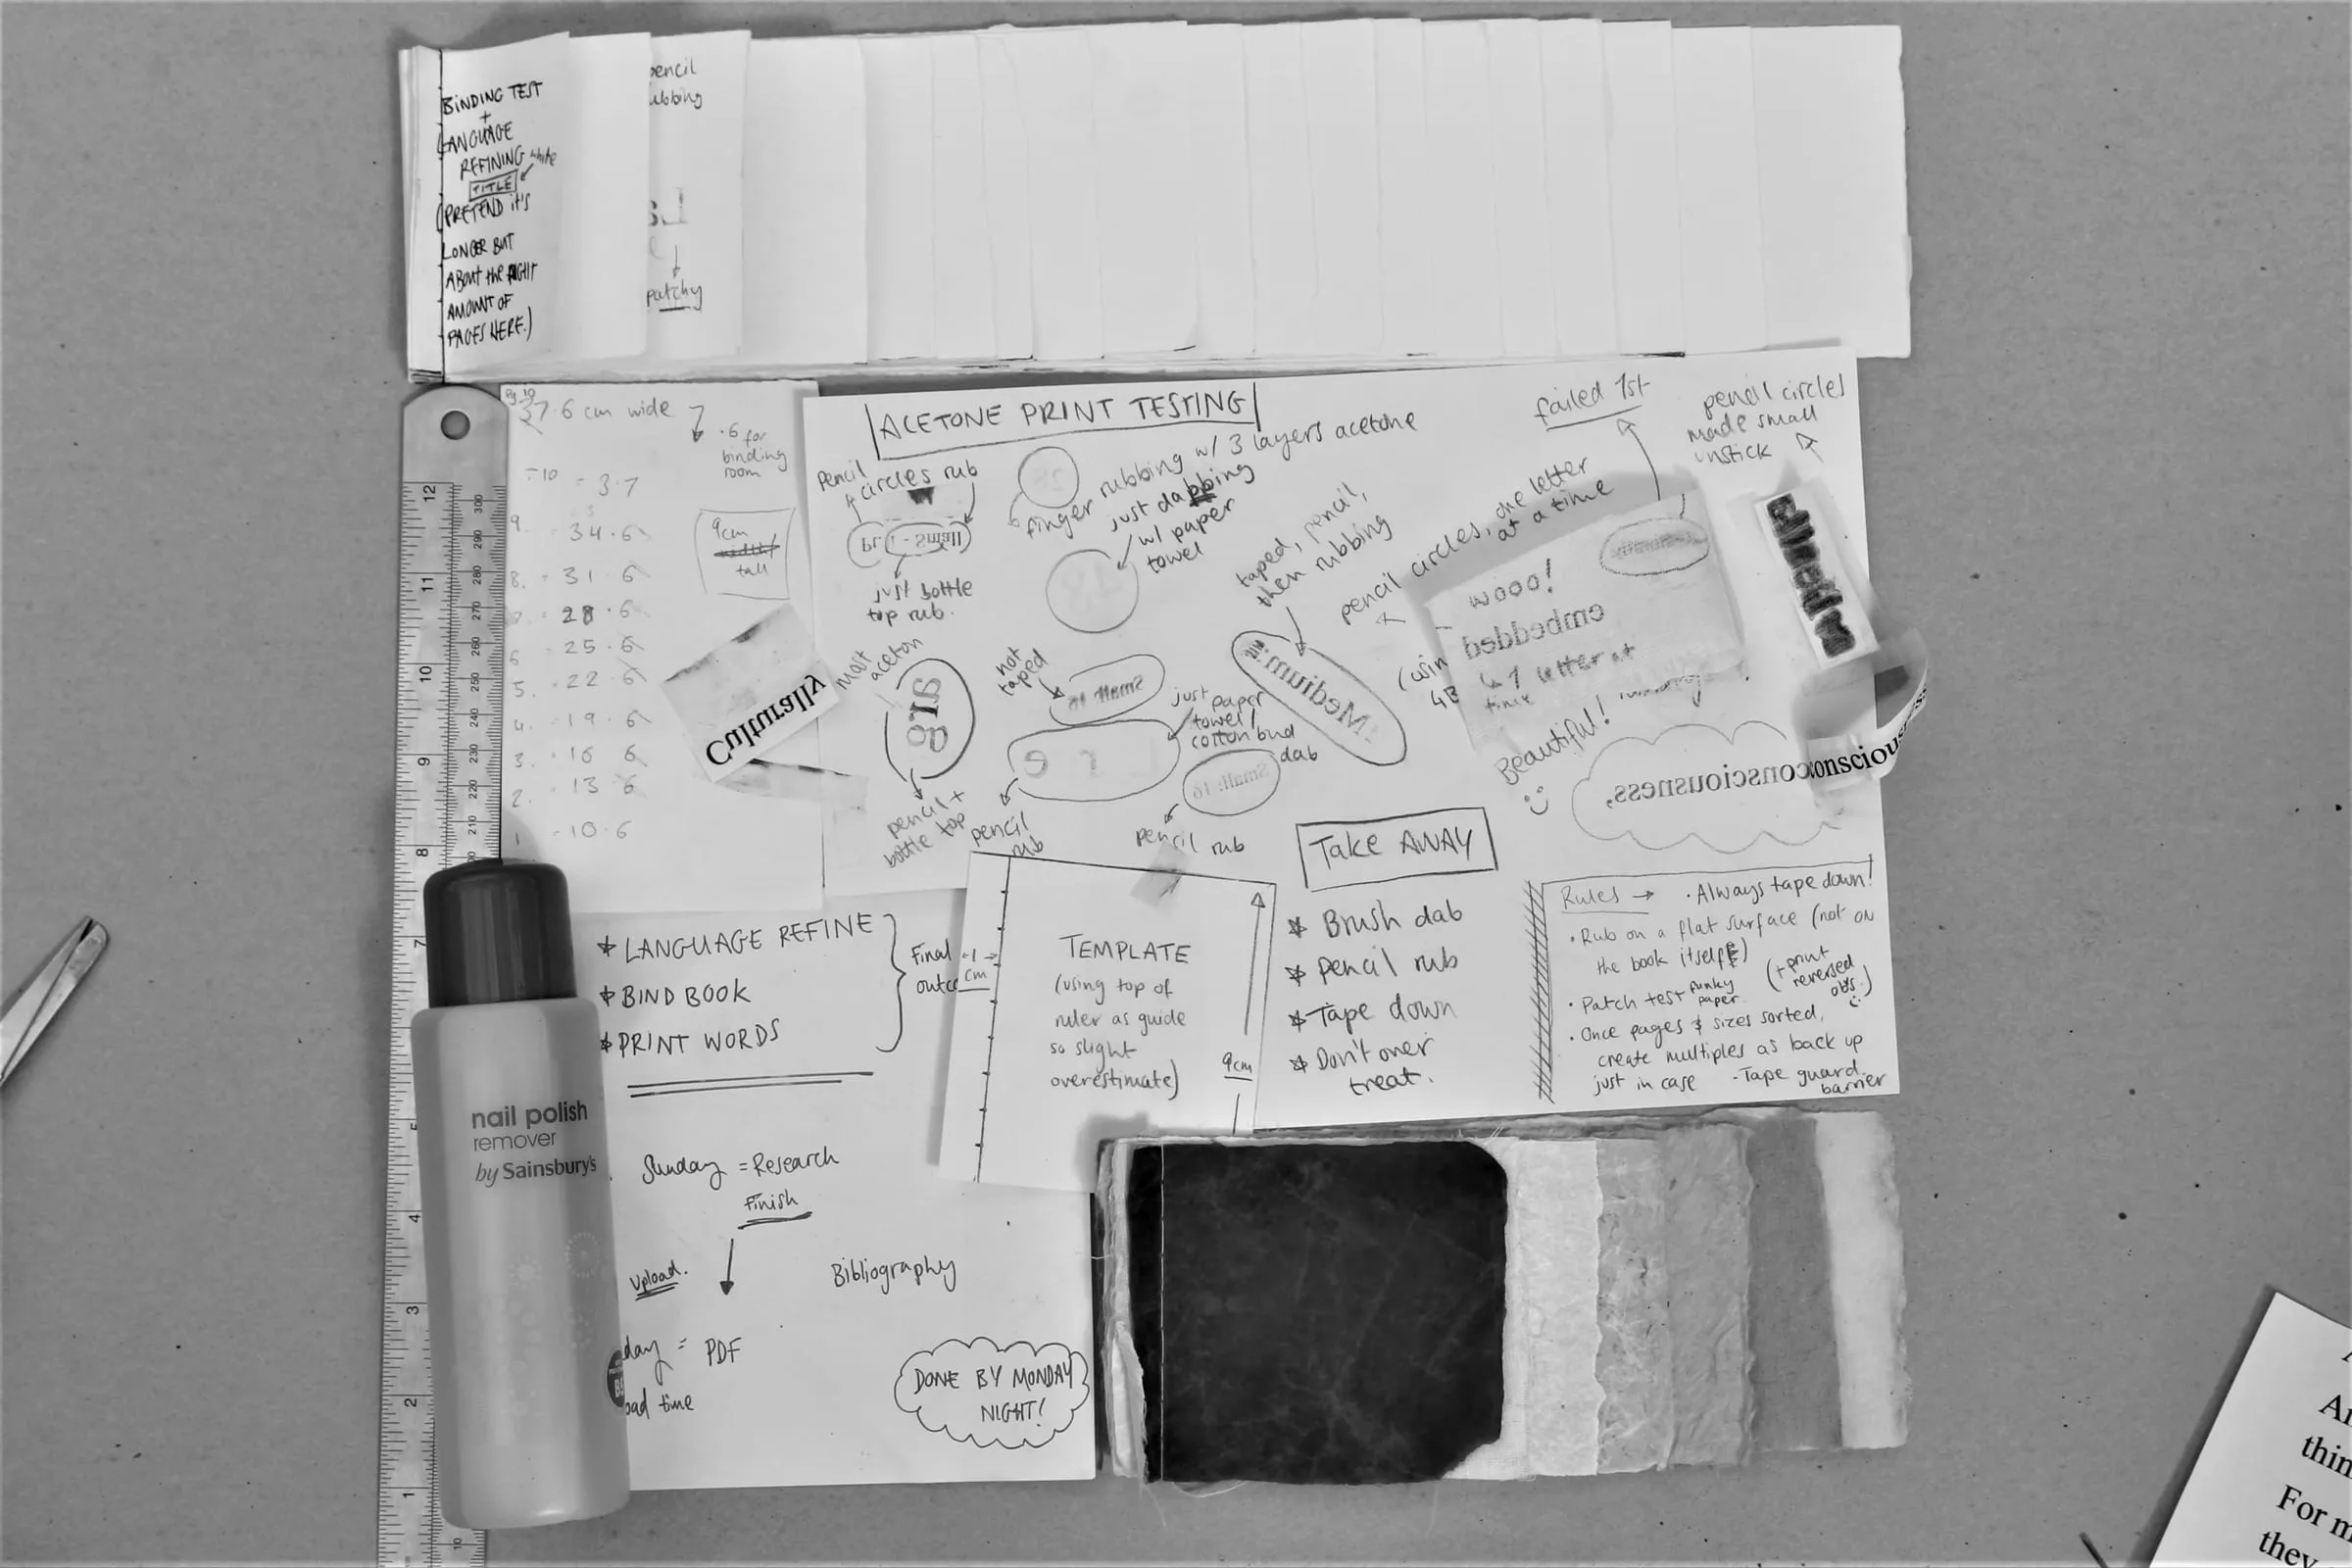 BINDING TEST
+
LANGUAGE
REFINING white
TITLE
(PRETEND it's
LONGER BUT
ABOUT the RIGHT
AMOUNT OF
PAGES HERE.)
pencil
rubbing
patchy
Pg 10
37.6 cm wide
.6 for
binding
room
÷10 = 3.7
9. = 34.6
8. = 31.6
28.6
6 25.6
5. 22.6
4. 19.6
3. 16 6
2. 13 6
1 10.6
9cm
tall
ACETONE PRINT TESTING
pencil
circles rub
Pt. 1 - Small
just bottle
top rub.
finger rubbing w/ 3 layers acetone
just dabbing
w/ paper
towel
taped, pencil,
then rubbing
pencil circles, one letter
at a time
failed 1st
pencil circles
made small
unstick
wooo!
embedded
↳ 1 letter at
time
Beautiful!
Culturally
most
aceton
pencil +
bottle top
not
taped
Small: 16
just paper
towel/
cotton bud
dab
Small: 16
pencil
rub
pencil rub
Medium:
consciousness,
conscious
Take AWAY
* Brush dab
* Pencil rub
* Tape down
* Don't over
treat.
Rules → • Always tape down!
• Rub on a flat surface (not on
the book itself)
• Patch test funky
paper.
(+ print
reversed
obs.)
• Once pages & sizes sorted,
create multiples as back up
just in case
- Tape guard
barrier
* LANGUAGE REFINE
* BIND BOOK
* PRINT WORDS
Final
1
cm
TEMPLATE
(using top of
ruler as guide
so slight
overestimate)
9cm
Sunday = Research
Finish
Upload.
Bibliography
day = PDF
time
DONE BY MONDAY
NIGHT!
nail polish
remover
by Sainsbury's
12
11
10
9
8
7
5
4
3
2
1
300
290
280
270
260
250
240
230
220
210
10
thin
For m
they